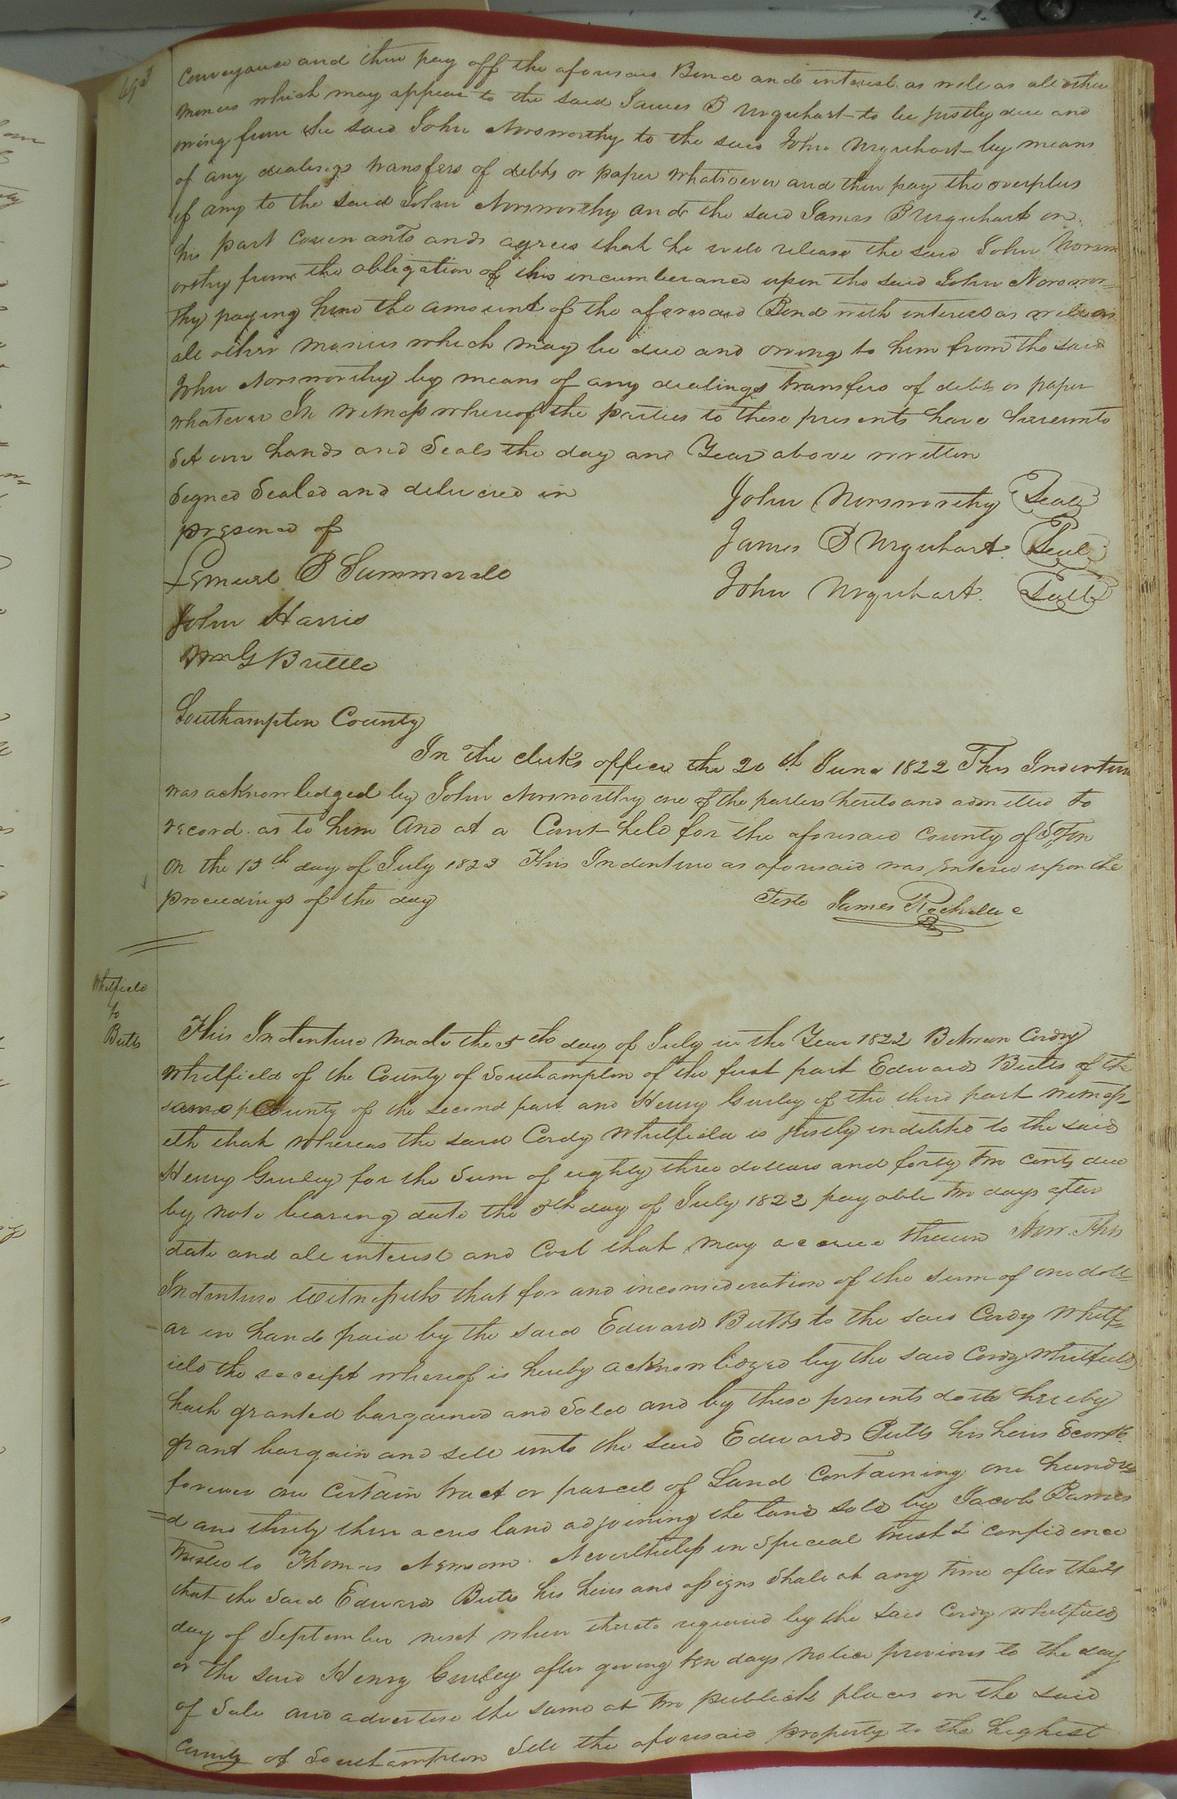 Conveyance and then pay off the aforesaid Bond and interest as well as all other
Monies which may appear to the said James B Urquhart to be justly due and
owing from the said John Norsworthy to the said John Urquhart by means
of any dealings transfers of debts or paper whatsoever and then pay the overplus
if any to the said John Norsworthy and the said James B Urquhart on
his part Covenants and agrees that he will release the said John Norsw
orthy from the obligation of this incumberance upon the said John Norswor=
thy paying him the amount of the aforesaid Bond with interest as well as
all other monies which may be due and owing to him from the said
John Norsworthy by means of any dealings Transfers of debts or paper
whatever In witness whereof the parties to these presents have hereunto
Set our hands and Seals the day and Year above written
Signed Sealed and delivered in
presence of
John Norsworthy Seal
James B Urquhart Seal
John Urquhart Seal
Lemuel B
John Harris
Wm G Brittle
Southampton County
In the clerks office the 20th June 1822 This Indenture
was acknowledged by John Norsworthy one of the parties hereto and admitted to
record as to him And at a Court held for the aforesaid County of Soton
on the 15th day of July 1822 This Indenture as aforesaid was entered upon the
proceedings of the day
Teste James Rochelle c
Whitfield
to
Butts
This Indenture Made the 5th day of July in the Year 1822 Between Cordy
Whitfield of the County of Southampton of the first part Edwards Butts of the
same County of the second part and Henry Gurley of the third part witness-
eth that whereas the said Cordy Whitfield is justly indebted to the said
Henry Gurley for the Sum of eighty three dollars and forty two cents due
by note bearing date the 5th day of July 1822 payable two days after
date and all interest and Cost that may accrue thereon Now This
Indenture Witnesseth that for and in consideration of the sum of one doll-
ar in hand paid by the said Edwards Butts to the said Cordy Whitf-
ield the receipt whereof is hereby acknowledged by the said Cordy Whitfield
hath granted bargained and Sold and by these presents doth hereby
grant bargain and sell unto the said Edwards Butts his heirs
forever one Certain tract or parcel of Land Containing one hundre
=d and thirty three acres land adjoining the land sold by Jacob Barnes
Trustee to Thomas Newsom Nevertheless in special trust & confidence
that the said Edwards Butts his heirs and assigns Shall at any time after the
day of September next when thereto required by the said Cordy Whitfield
or the said Henry Gurley after giving ten days notice previous to the day
of Sale and advertise the same at two publick places in the said
County of Southampton Sell the aforesaid property to the highest